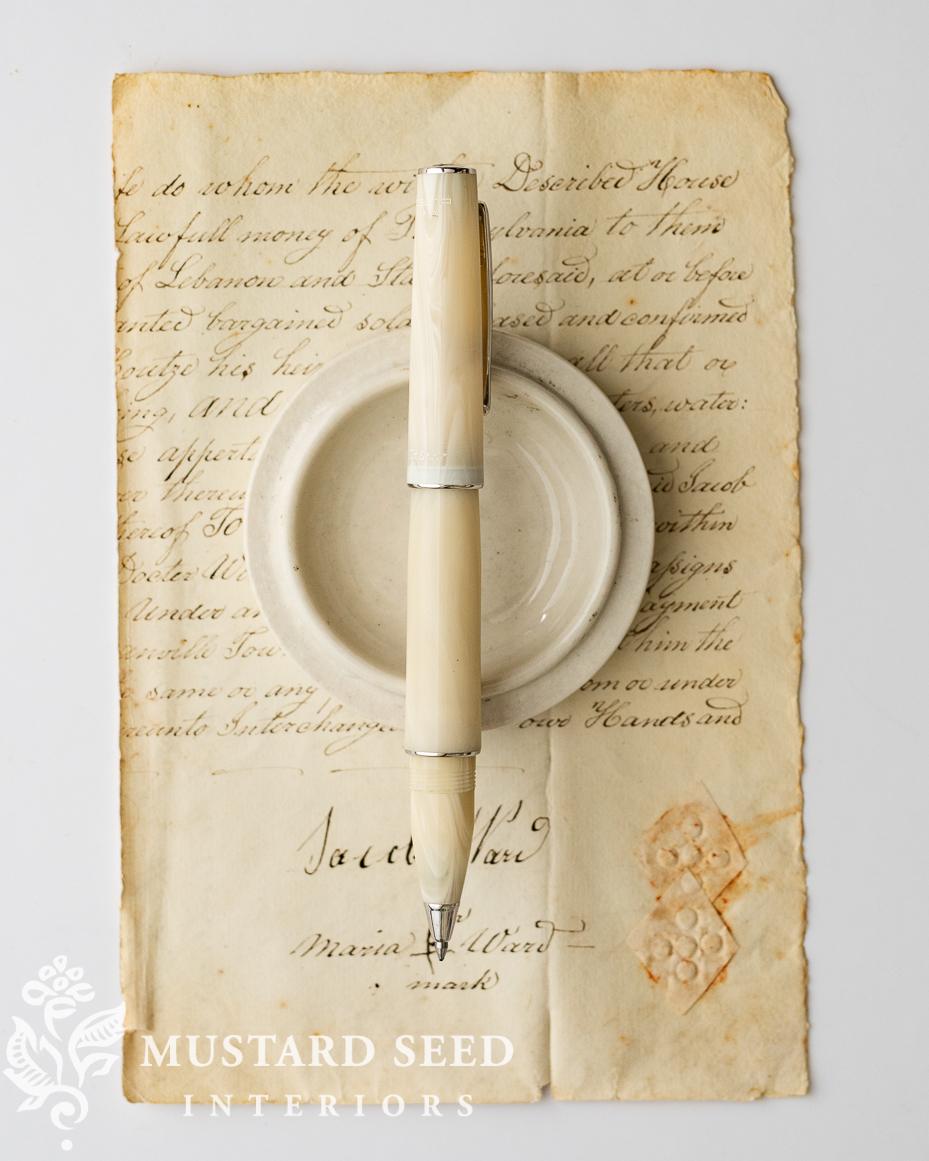 do whom the Described House
Lawfull money of ylvania to them
of Lebanon and Sta foresaid, at or before
anted bargained sold ased and confirmed
Coutze his heir all that or
ing, and ters, water:
se apperte and
er thereu id Jacob
hereof To within
Docter Wi aſsigns
Under an ayment
anville Tow him the
same or any om or under
reunto Interchange our Hands and
Jacob Ward
Maria Ward
mark
MUSTARD SEED
INTERIORS